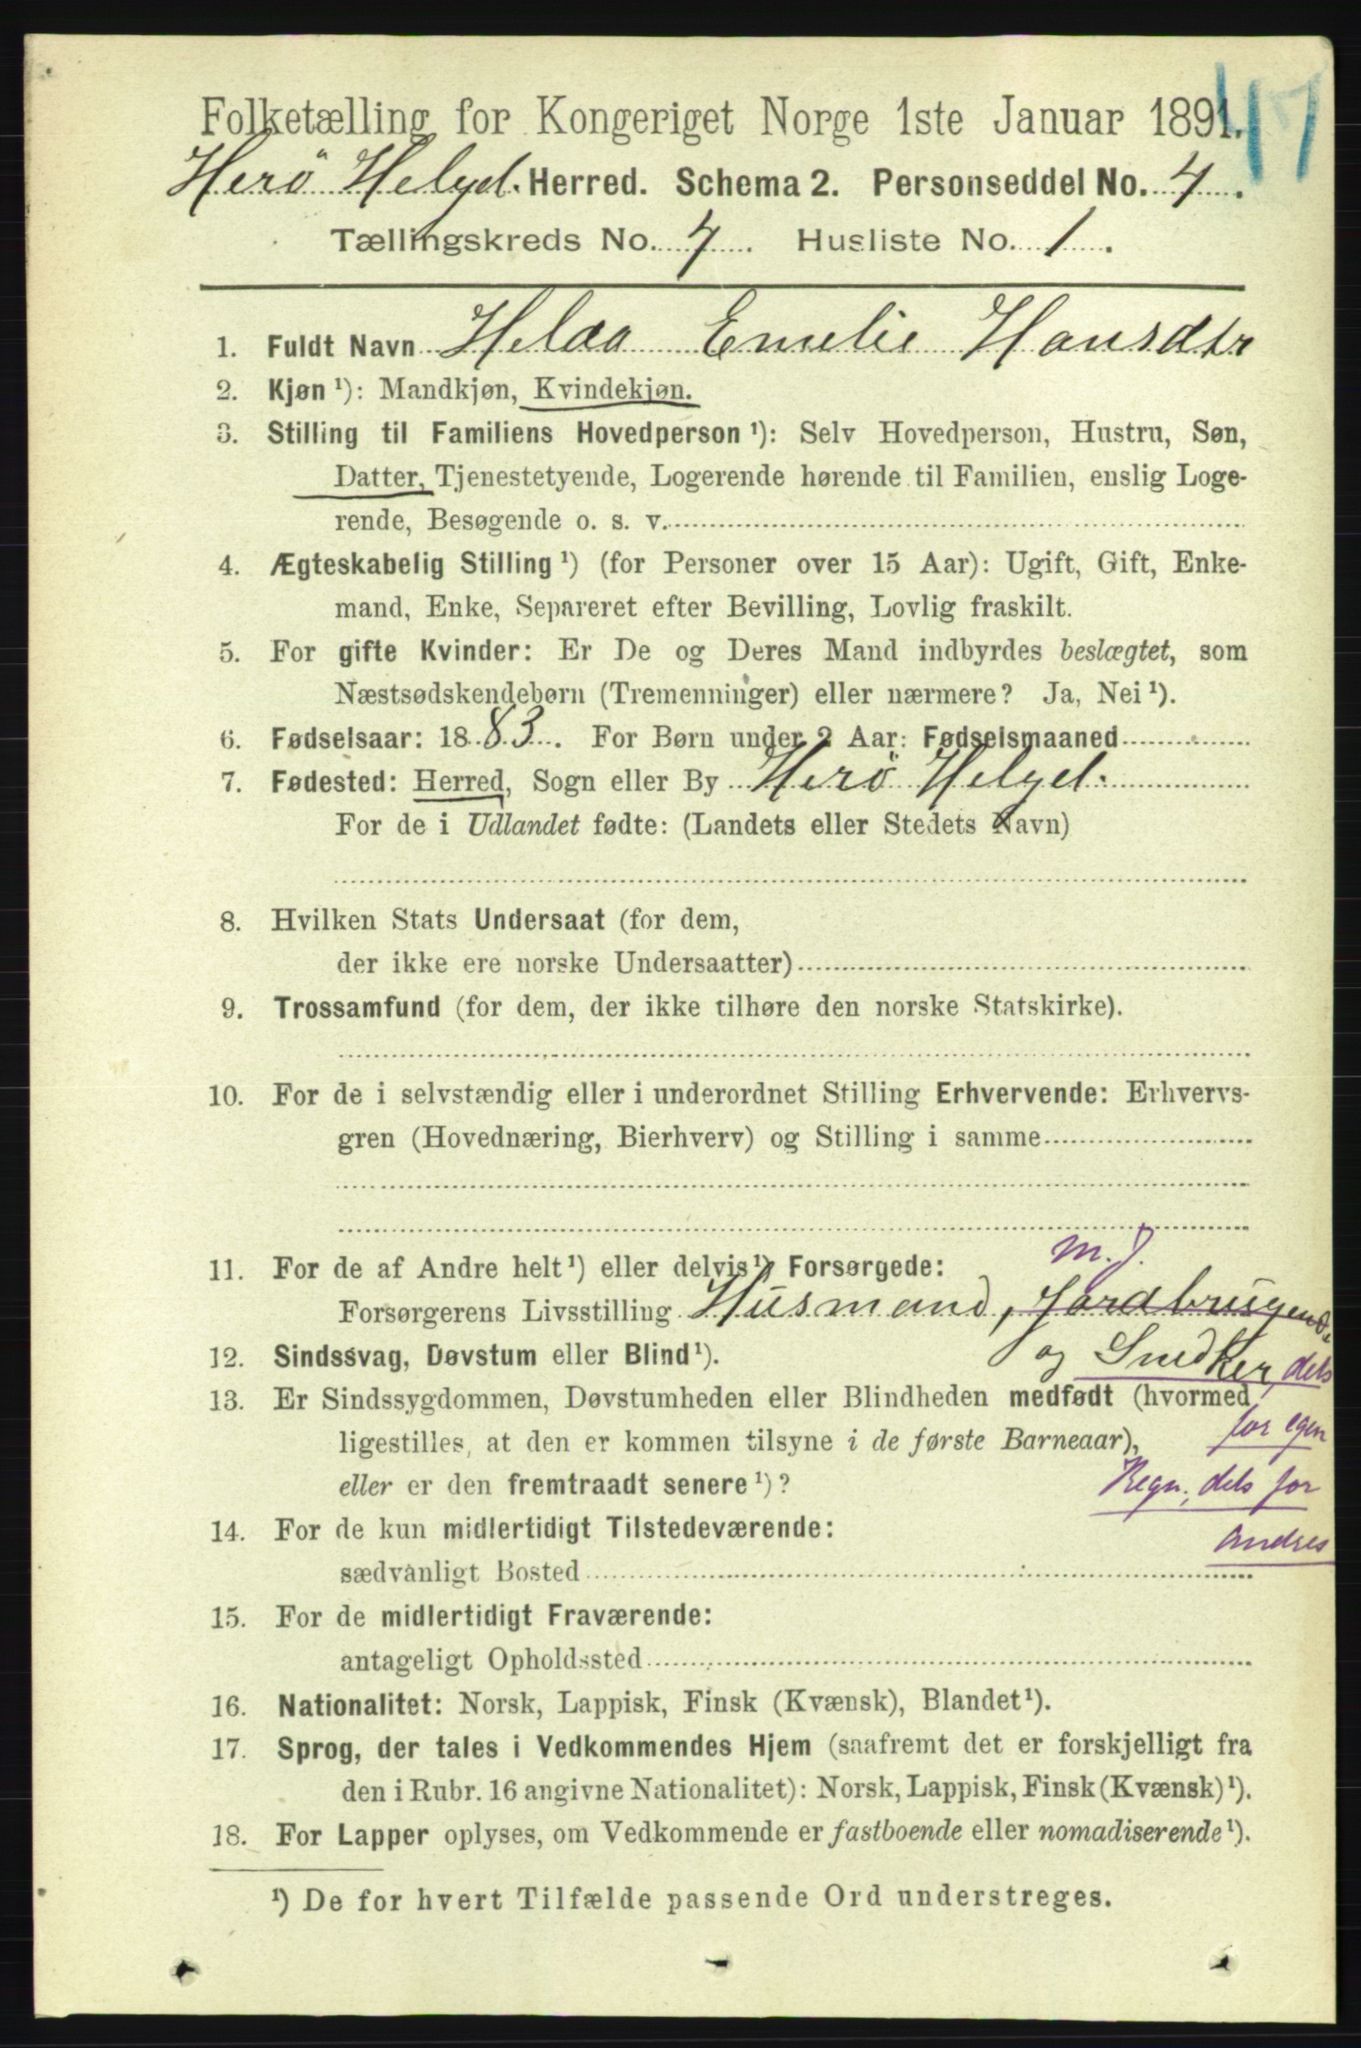 117
Folketælling for Kongeriget Norge 1ste Januar 1891.
Herö Helgel. Herred. Schema 2. Personseddel No. 4.
Tællingskreds No. 4. Husliste No. 1.
1. Fuldt Navn Helda Emelie Hansdtr
2. Kjøn ¹): Mandkjøn, Kvindekjøn.
3. Stilling til Familiens Hovedperson ¹): Selv Hovedperson, Hustru, Søn,
Datter, Tjenestetyende, Logerende hørende til Familien, enslig Loge-
rende, Besøgende o. s. v.
4. Ægteskabelig Stilling ¹) (for Personer over 15 Aar): Ugift, Gift, Enke-
mand, Enke, Separeret efter Bevilling, Lovlig fraskilt.
5. For gifte Kvinder: Er De og Deres Mand indbyrdes beslægtet, som
Næstsødskendebørn (Tremenninger) eller nærmere? Ja, Nei ¹).
6. Fødselsaar: 1883. For Børn under 2 Aar: Fødselsmaaned
7. Fødested: Herred, Sogn eller By Herö Helgel.
For de i Udlandet fødte: (Landets eller Stedets Navn)
8. Hvilken Stats Undersaat (for dem,
der ikke ere norske Undersaatter)
9. Trossamfund (for dem, der ikke tilhøre den norske Statskirke).
10. For de i selvstændig eller i underordnet Stilling Erhvervende: Erhvervs-
gren (Hovednæring, Bierhverv) og Stilling i samme
m. J.
11. For de af Andre helt ¹) eller delvis ¹) Forsørgede:
Forsørgerens Livsstilling Husmand, Jordbrugende
12. Sindssvag, Døvstum eller Blind ¹). og Snedker, dels
13. Er Sindssygdommen, Døvstumheden eller Blindheden medfødt (hvormed
for egen
ligestilles, at den er kommen tilsyne i de første Barneaar),
eller er den fremtraadt senere ¹)? Regn., dels for
14. For de kun midlertidigt Tilstedeværende: Andres
sædvanligt Bosted
15. For de midlertidigt Fraværende:
antageligt Opholdssted
16. Nationalitet: Norsk, Lappisk, Finsk (Kvænsk), Blandet ¹).
17. Sprog, der tales i Vedkommendes Hjem (saafremt det er forskjelligt fra
den i Rubr. 16 angivne Nationalitet): Norsk, Lappisk, Finsk (Kvænsk) ¹).
18. For Lapper oplyses, om Vedkommende er fastboende eller nomadiserende ¹).
¹) De for hvert Tilfælde passende Ord understreges.